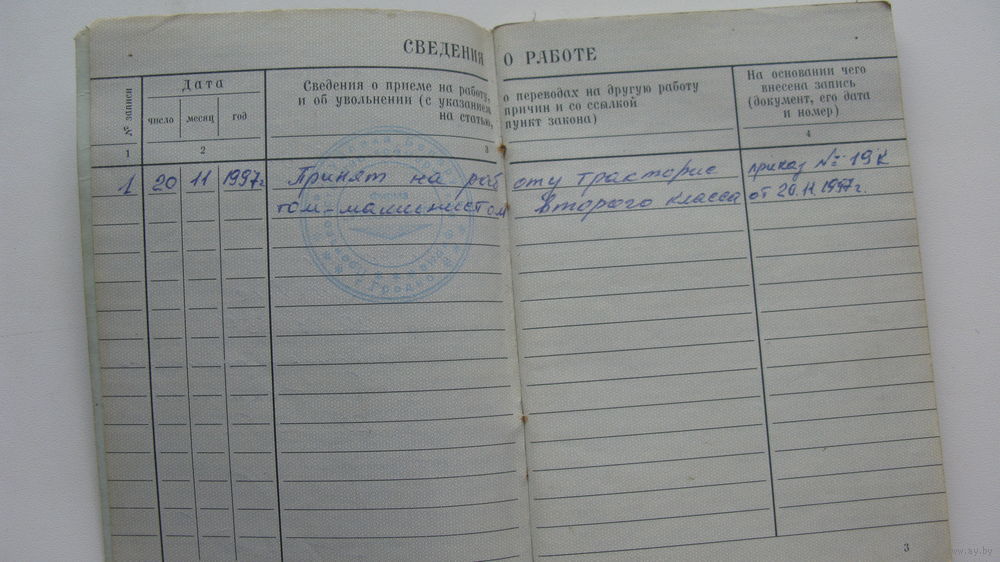 СВЕДЕНИЯ О РАБОТЕ
№ записи
Дата
число месяц год
Сведения о приеме на работу, о переводах на другую работу
и об увольнении (с указанием причин и со ссылкой
на статью, пункт закона)
На основании чего
внесена запись
(документ, его дата
и номер)
1 2 3 4
1 20 11 1997г Принят на работу трактористом- приказ № 19 К
том-машинистом второго класса от 20.11.1997г.
3
www.ay.by